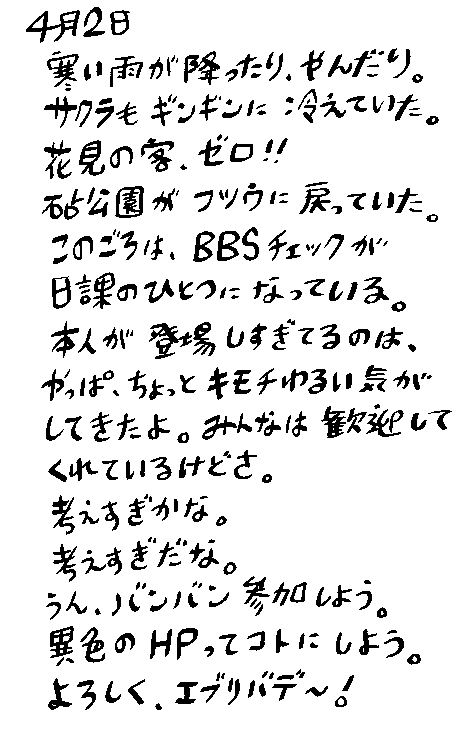 4月2日
寒い雨が降ったり、やんだり。
サクラも ギンギンに 冷えていた。
花見の客、ゼロ!!
砧公園が フツウに 戻っていた。
このごろは、BBSチェックが
日課のひとつに なっている。
本人が 登場しすぎてるのは、
やっぱ、ちょっと キモチわるい気が
してきたよ。みんなは 歓迎して
くれているけどさ。
考えすぎかな。
考えすぎだな。
うん、バンバン 参加しよう。
異色の HPってコトに しよう。
よろしく、エブリバデ〜!